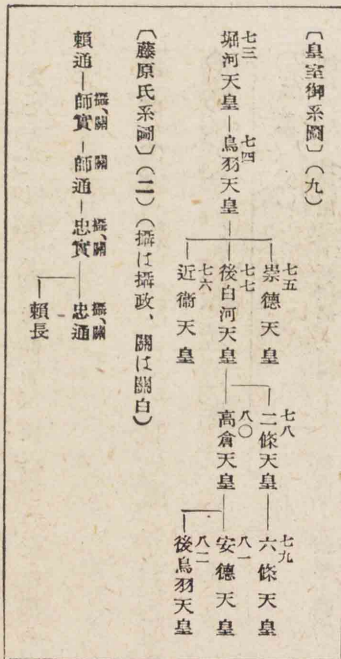 〔皇室御系圖〕(九)
七三
堀河天皇
七四
鳥羽天皇
七五
崇德天皇
七七
後白河天皇
七六
近衞天皇
七八
二條天皇
八〇
高倉天皇
七九
六條天皇
八一
安德天皇
八二
後鳥羽天皇
〔藤原氏系圖〕(二)(攝は攝政、關は關白)
賴通
攝、關
師實
關
師通
攝、關
忠實
攝、關
忠通
賴長